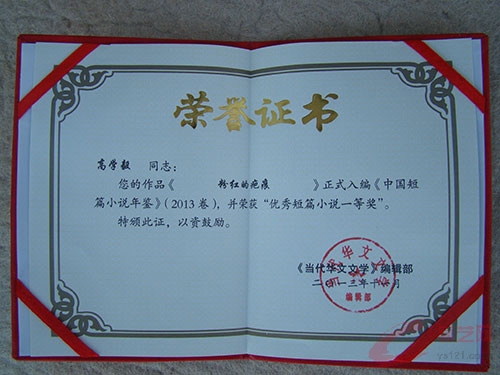 荣誉证书
高学毅 同志：
您的作品《 粉红的疤痕 》正式入编《中国短
篇小说年鉴》（2013卷），并荣获“优秀短篇小说一等奖”。
特颁此证，以资鼓励。
《当代华文文学》编辑部
二〇一三年十 月
当代华文文学
编辑部